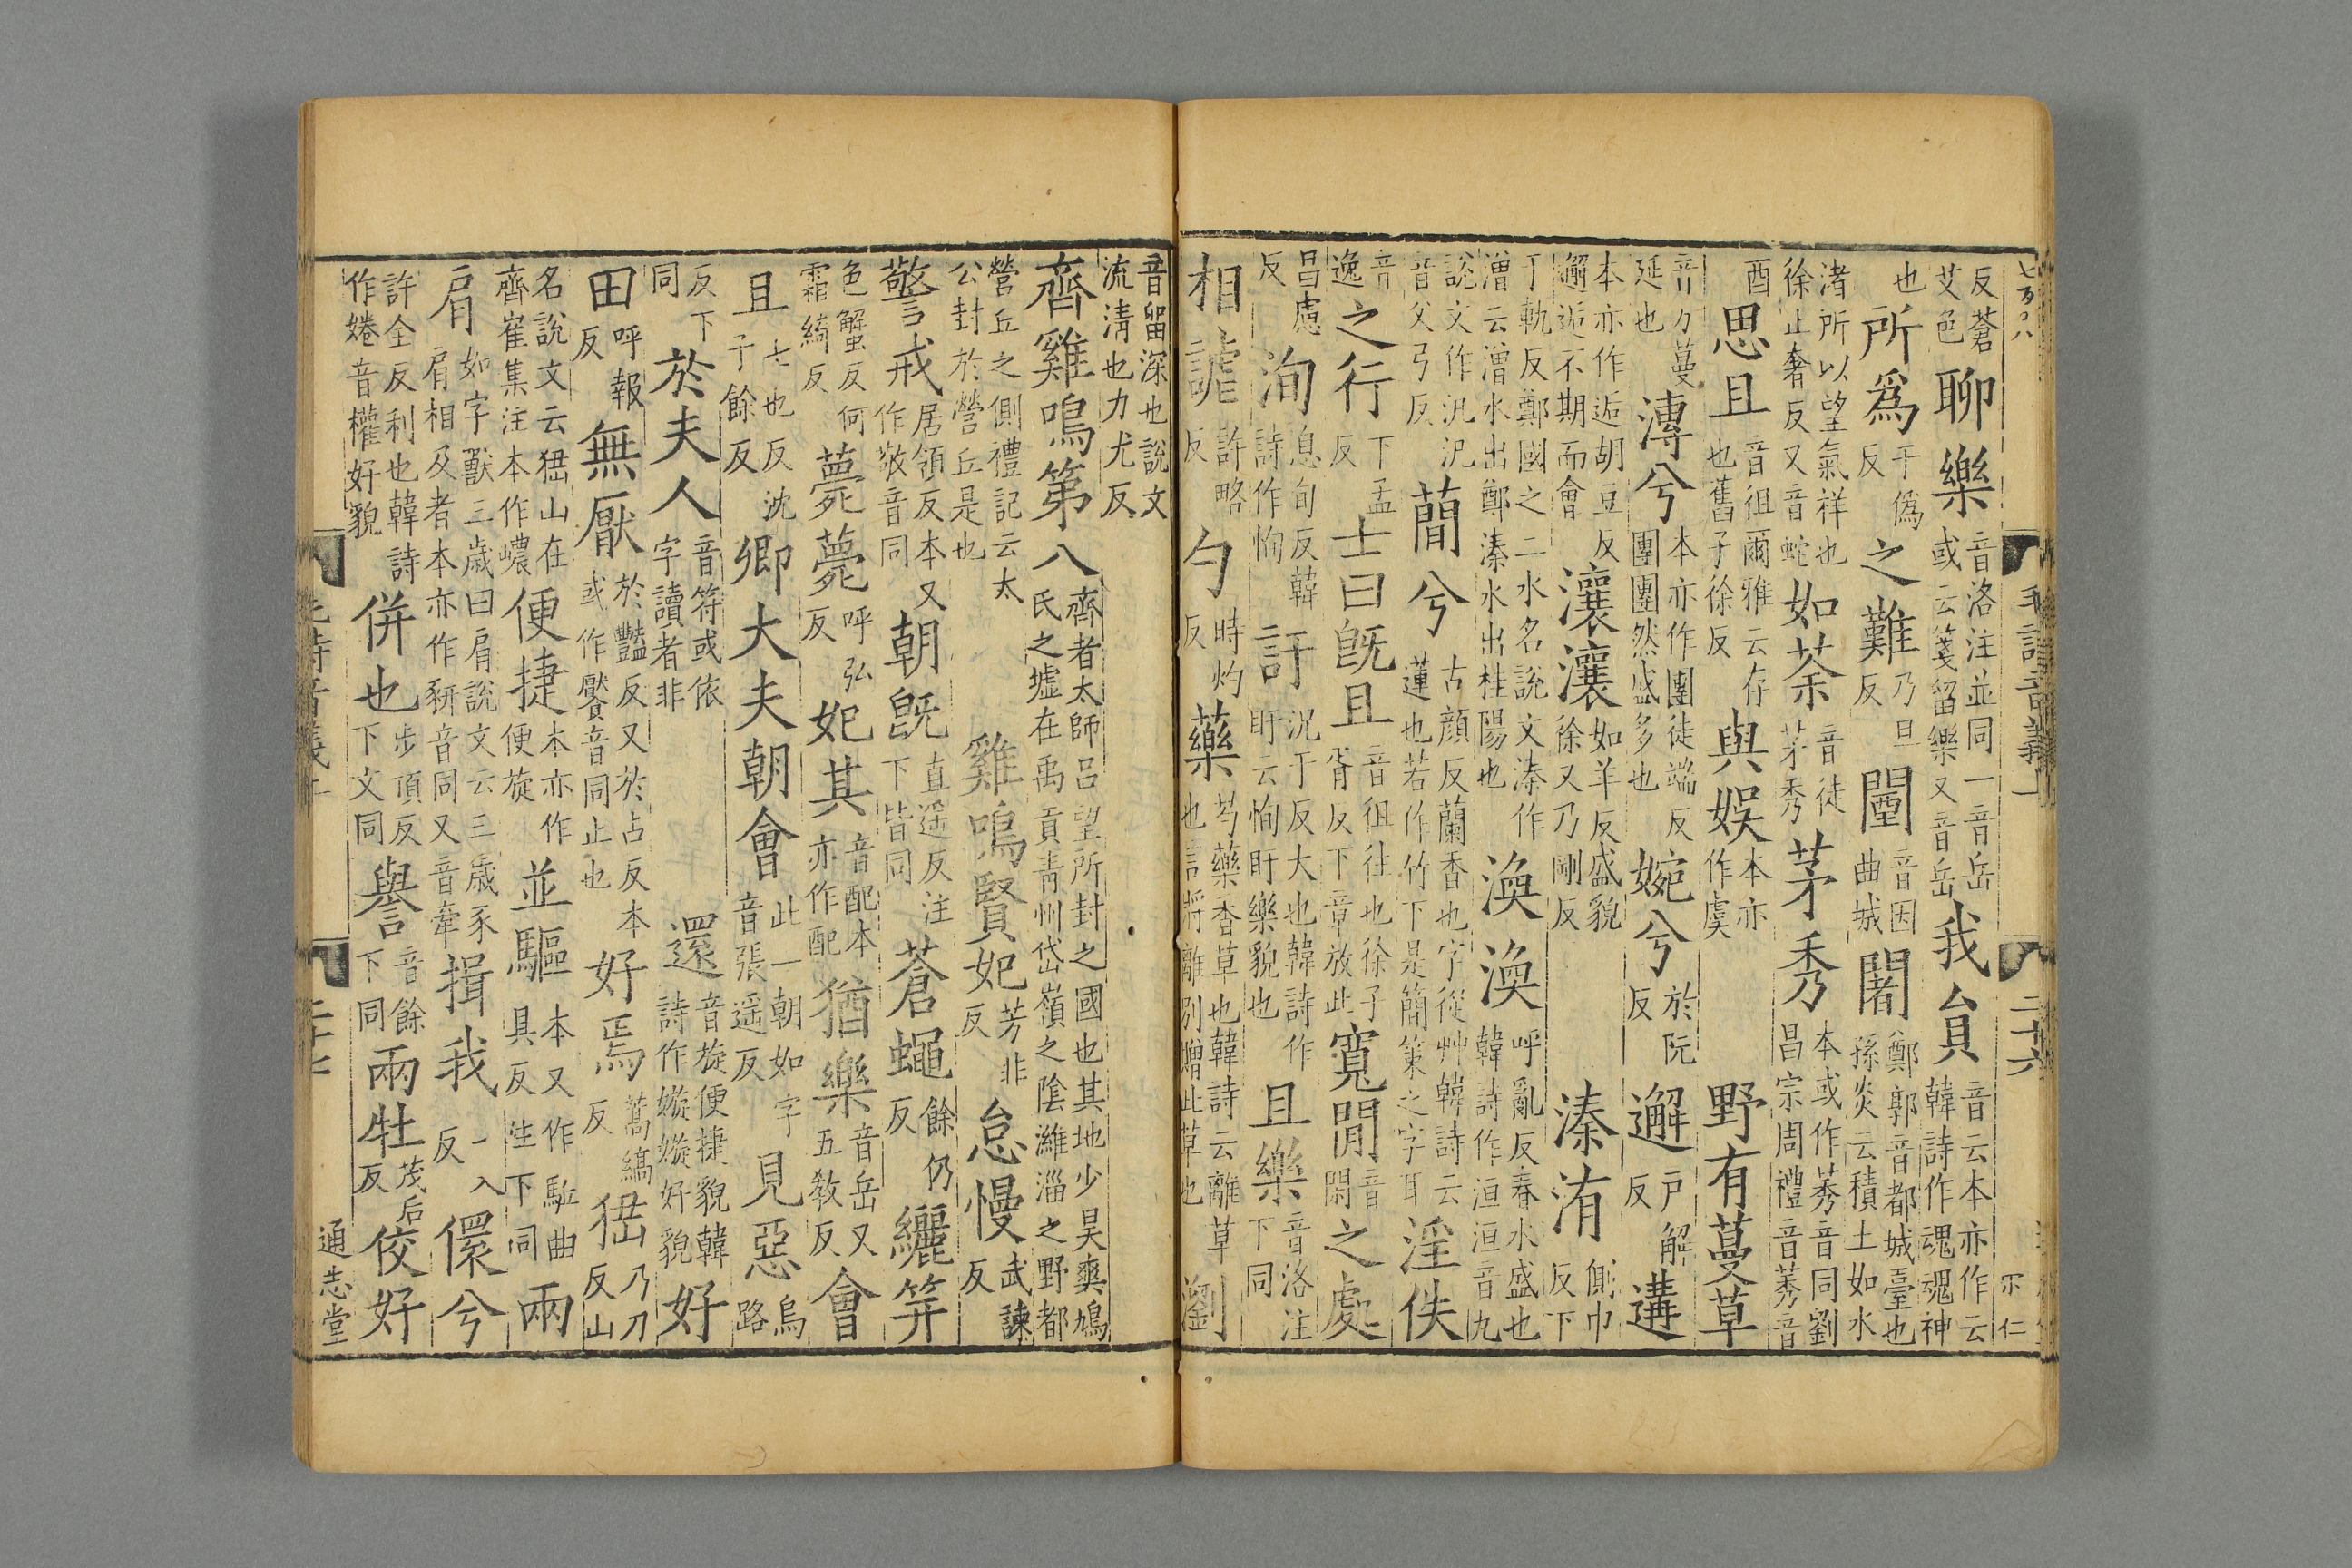 七百八 毛詩音義上 二十六 不仁
反蒼艾色聊樂音洛注並同一音岳或云箋留樂又音岳我貟音云本亦作云韓詩作魂魂神
也所爲于僞反之難乃旦反闉音因曲城闍鄭郭音都城臺也孫炎云積土如水
渚所以望氣祥也徐止奢反又音蛇如荼音徒茅秀茅秀本或作莠音同劉昌宗周禮音莠音
酉思且音徂爾雅云存也舊子徐反與娛本亦作虞野有蔓草
音万蔓延也漙兮本亦作團徒端反團團然盛多也婉兮於阮反邂戸解反遘
本亦作逅胡豆反邂逅不期而會瀼瀼如羊反盛貌徐又乃剛反溱洧側巾反下
于軌反鄭國之二水名說文溱作潧云潧水出鄭溱水出桂陽也渙渙呼亂反春水盛也韓詩作洹洹音丸
說文作汎汎音父弓反蕑兮古顔反蘭香也字從艸韓詩云蓮也若作竹下是簡策之字耳淫佚
音逸之行下孟反士曰旣且音徂往也徐子胥反下章放此寬閒音閑之處
昌慮反洵息旬反韓詩作恂訏況于反大也韓詩作盱云恂盱樂貌也且樂音洛注下同
相謔許略反勺時灼反藥芍藥香草也韓詩云離草也言將離別贈此草也瀏
音留深也說文流清也力尤反
齊雞鳴第八齊者太師吕望所封之國也其地少昊爽鳩氏之墟在禹貢青州岱嶺之陰濰淄之野都
營丘之側禮記云太公封於營丘是也 雞鳴賢妃芳非反怠慢武諫反
警戒居領反本又作敬音同朝旣直遥反注下皆同蒼蠅餘仍反纚笄
色蟹反何霜綺反薨薨呼弘反妃其音配本亦作配猶樂音岳又五教反會
且七也反沈子餘反卿大夫朝會此一朝如字音張遥反見惡烏路
反下同於夫人音符或依字讀者非 還音旋便捷貌韓詩作嫙嫙好貌好
田呼報反無厭於豔反又於占反本或作饜音同止也好焉蒿縞反峱乃刀反山
名說文云峱山在齊崔集注本作嶩便捷本亦作便旋並驅本又作駈曲具反注下同兩
肩如字獸三歳曰肩說文云三歳豕肩相及者本亦作豣音同又音牽揖我一入反儇兮
許全反利也韓詩作婘音權好貌併也步頂反下文同譽音餘下同兩牡茂后反佼好
毛詩音義上 二十七 通志堂